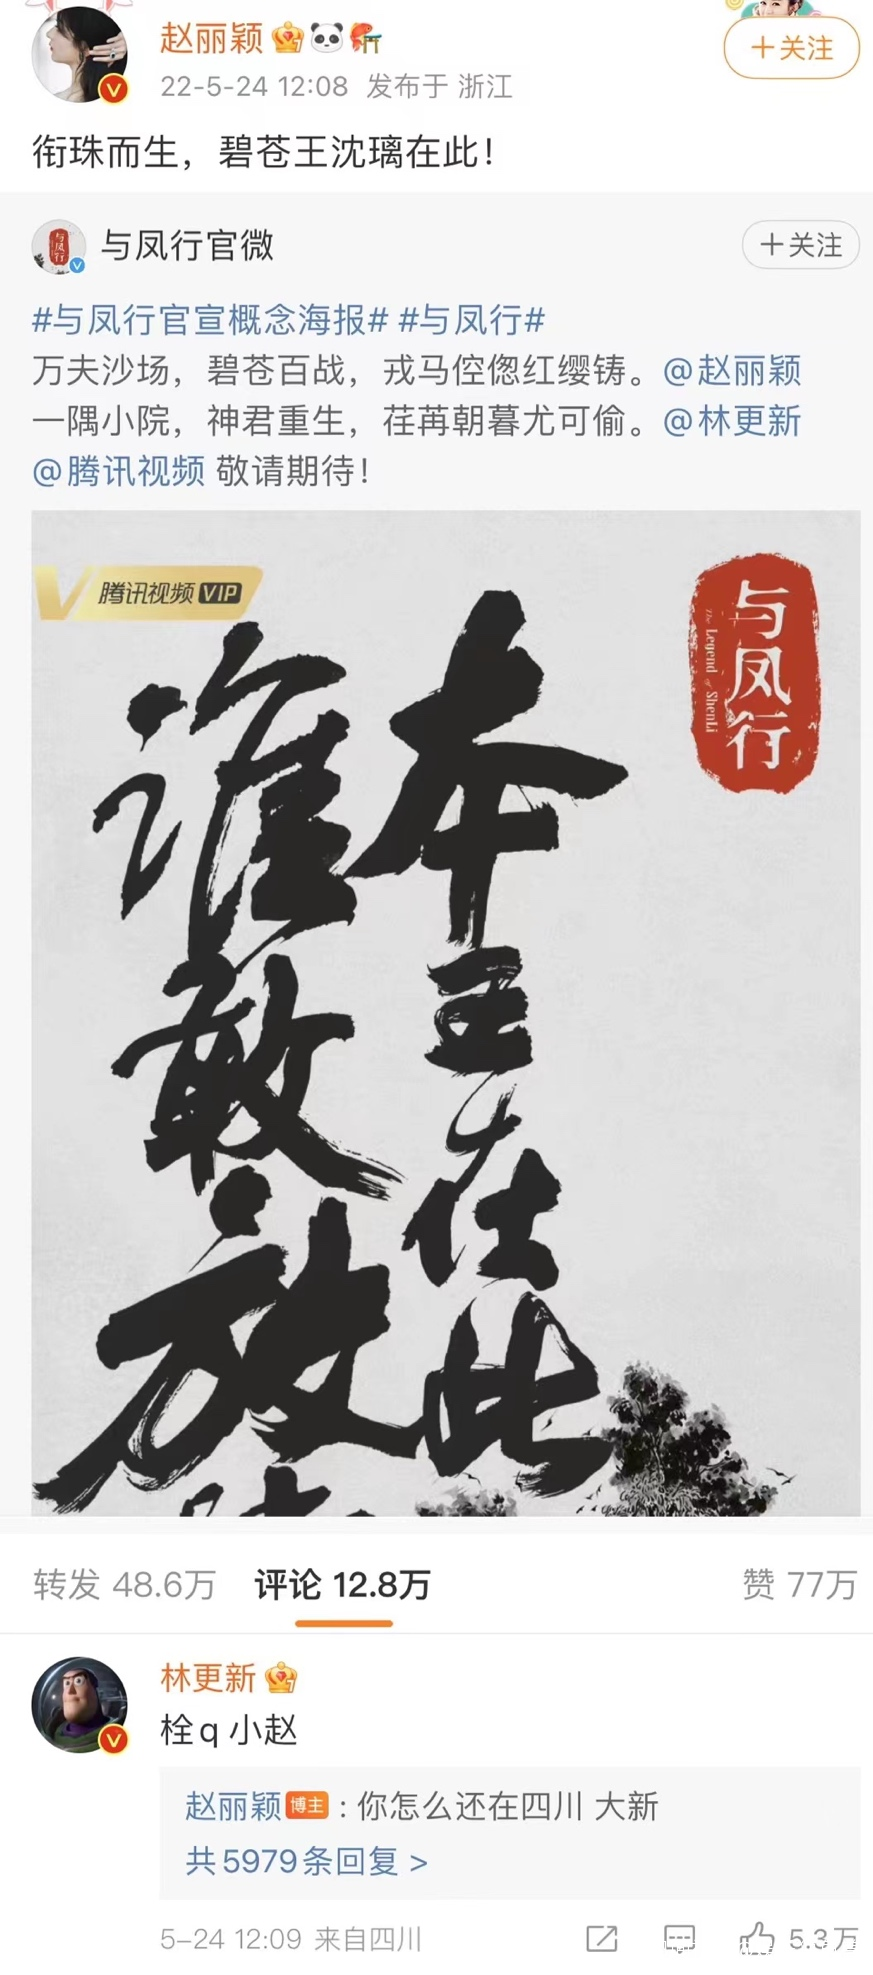 赵丽颖
+关注
22-5-24 12:08 发布于 浙江
衔珠而生，碧苍王沈璃在此！
与凤行官微
+关注
#与凤行官宣概念海报# #与凤行#
万夫沙场，碧苍百战，戎马倥偬红缨铸。@赵丽颖
一隅小院，神君重生，荏苒朝暮尤可偷。@林更新
@腾讯视频 敬请期待！
腾讯视频 VIP
与凤行
The Legend of ShenLi
本王在此
谁敢放
转发 48.6万 评论 12.8万 赞 77万
林更新
栓q 小赵
赵丽颖 博主：你怎么还在四川 大新
共5979条回复 >
5-24 12:09 来自四川
5.3万